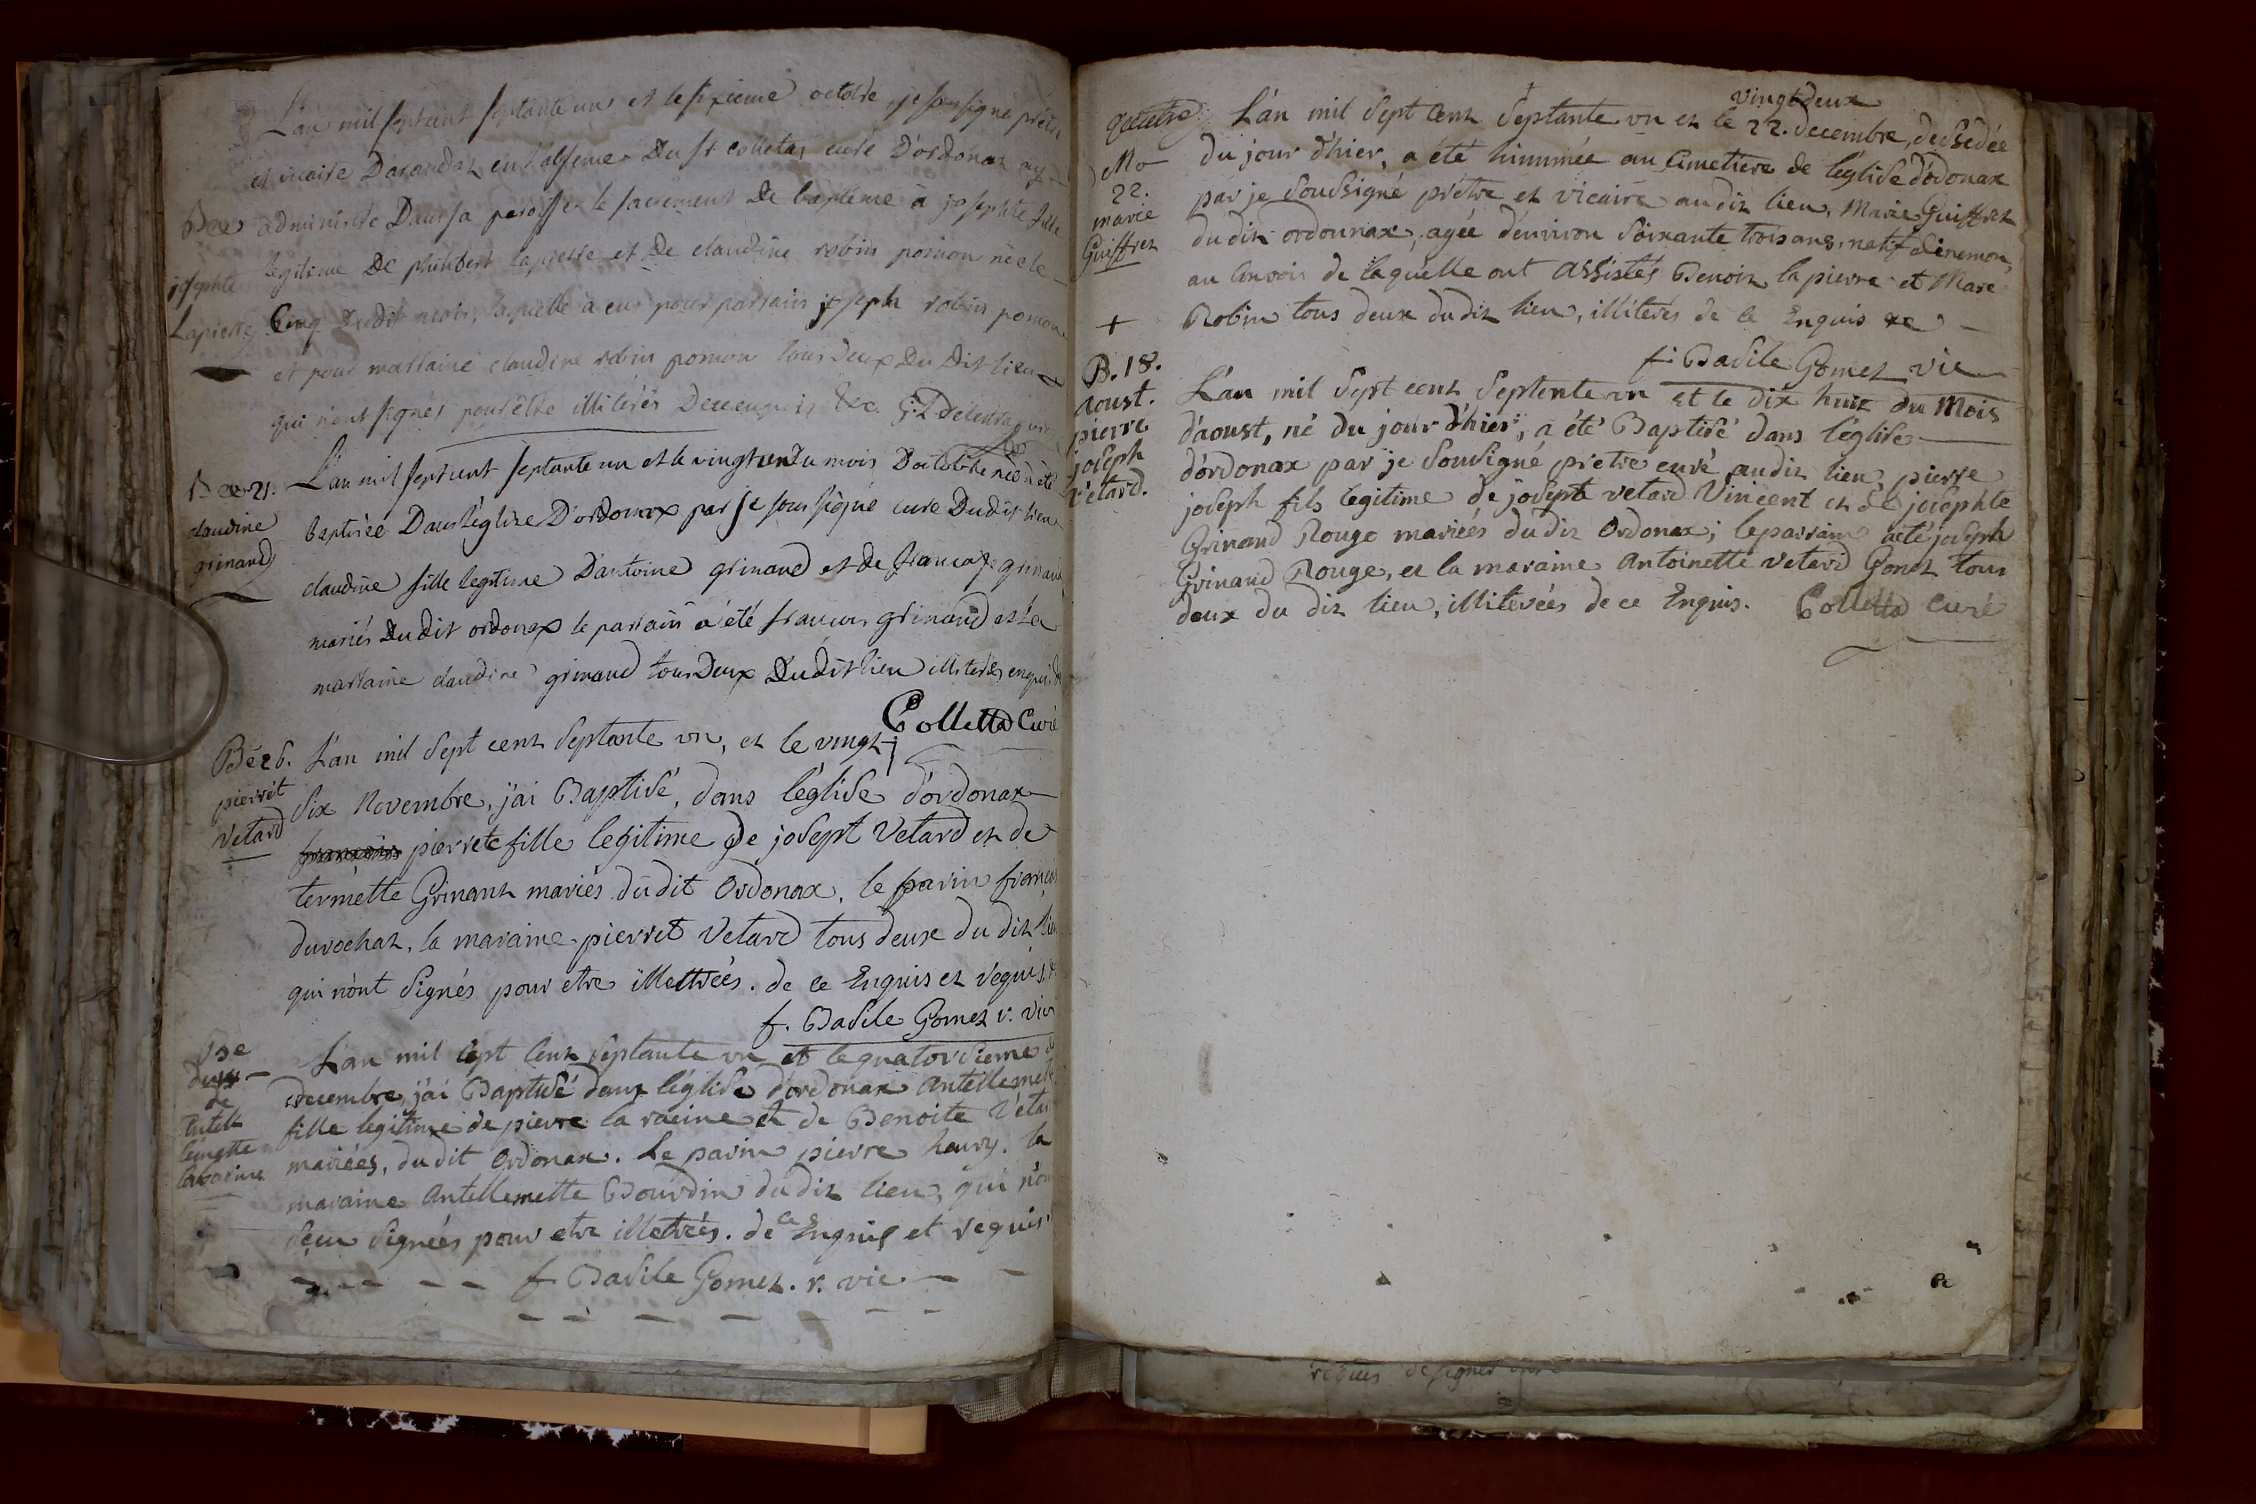 L'an mil sept cent septante un et le sixieme octobre, je soussigné prêtre
et vicaire Darandaz en l'absence Du Sr Colletaz curé D'ordonaz ay
Bee administré Dans sa paroisse le sacrement De baptême à josephte fille
josephte legitime De philibert lapierre et De claudine robin pomon née le
Lapierre Cinq Dudit mois, laquelle a eu pour parrain joseph robin pomon
et pour marraine claudine robin pomon tous Deux Du Dit lieu
qui n'ont signés pour être illiterés De ce enquis &c.
Bee 21. L'an mil sept cent septante un et le vingt un Du mois D'octobre née a été
claudine baptisée Dans l'églize D'ordonax par je soussigné curé Dudit lieu
grinand claudine fille legitime D'antoine grinand et de grinand
mariés Dudit ordonax le parain a été francois grinand et la
marraine claudine grinand tous Deux Dudit lieu illiterés enquis
Colletta Curé
Bée 26. L'an mil sept cent septante un, et le vingt
pierret six Novembre, j'ai Baptisé, dans l'église d'ordonax
Vetard francois pierrete fille legitime De josept Vetard et de
termette Grinant mariés dudit Ordonax, le parin francois
durochat, la maraine pierret Vetard tous deux du dit lieu
qui n'ont signés pour etre illettrées. de ce Enquis et requis
f. Basile Gomet v. vic
Bse L'an mil sept cent septante un et le quatorsieme
decembre, j'ai Baptisé dans l'église d'ordonax Antellemette
de
fille legitime de pierre la racine et de Benoite Vetar
lemette mariées, du dit Ordonax. Le parin pierre henry. la
laracine
maraine Antellemette Bourdin du dit lieu, qui n'on
seu signées pour etre illetrées. de ce Enquis et requis
f Basile Gomet. v. vic
vingt deux
quatre L'an mil sept cent septante un et le 22. decembre, dessedée
Mo du jour d'hier, a été hinumée au Cimetiere de l'eglise d'odonax
22. par je soussigné prêtre et vicaire au dit lieu, Marie Guiffret
marie
Guiffret du dit ordonnax, agée d'environ soixante trois ans, natif
au Convois de laquelle ont assistés Benoit la pierre et Marc
+ Robin tous deux du dit lieu, illiterés de ce Enquis &c
f. Basile Gomet vic
B. 18. L'an mil sept cent septente un et le dix huit du Mois
aoust. d'aoust, né du jour d'hier, a été Baptisé dans l'église
pierre d'ordonax par je sousigné pretre curé au dit lieu, pierre
joseph joseph fils legitime de josept vetard Vincent et de josephte
vetard. Grinand Rouge mariéés du dit Ordonax; le parrain a été joseph
Grinand Rouge, et la maraine Antoinette vetard Gonet tous
deux du dit lieu, illiterées de ce Enquis. Colletta Curé
requis de signer